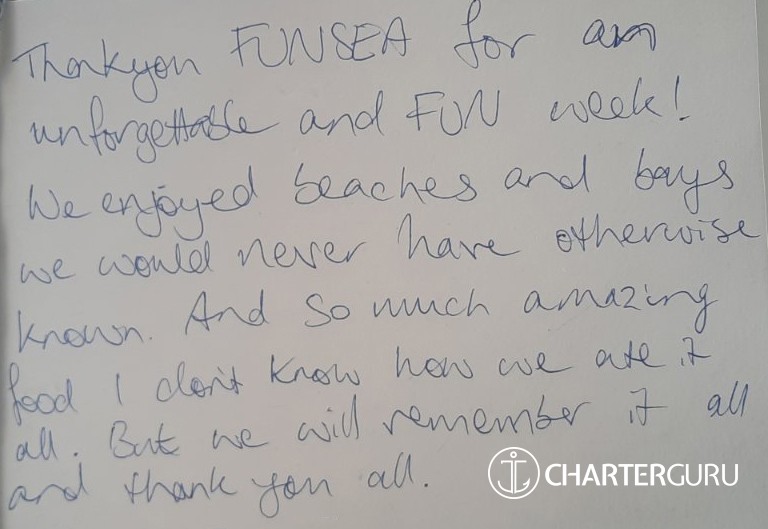 Thankyou FUNSEA for an
unforgettable and FUN week!
We enjoyed beaches and bays
we would never have otherwise
known. And so much amazing
food I don't know how we ate it
all. But we will remember it all
and thank you all.
CHARTERGURU